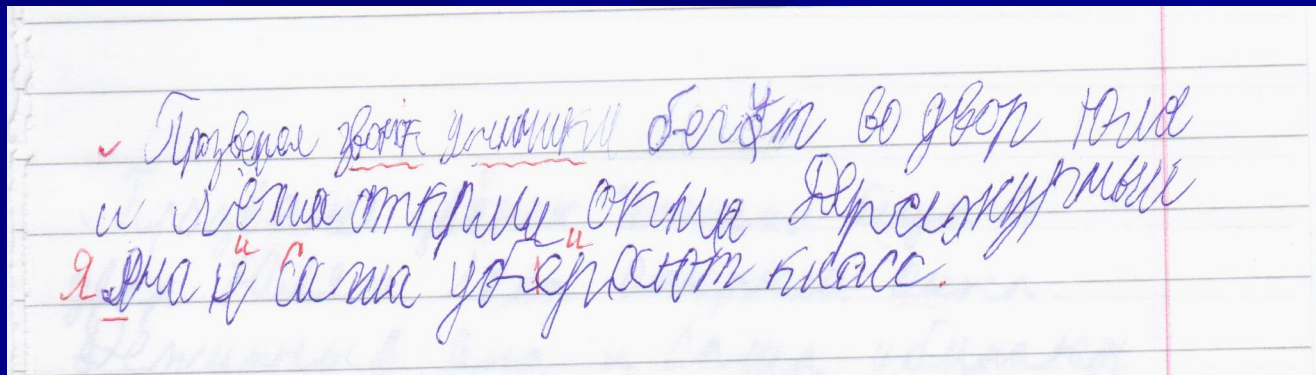 Празвенел звонок ученики бегут во двор Юля
и Лёша открыли окна Держжурный
Яяна и Саша уберают класс.